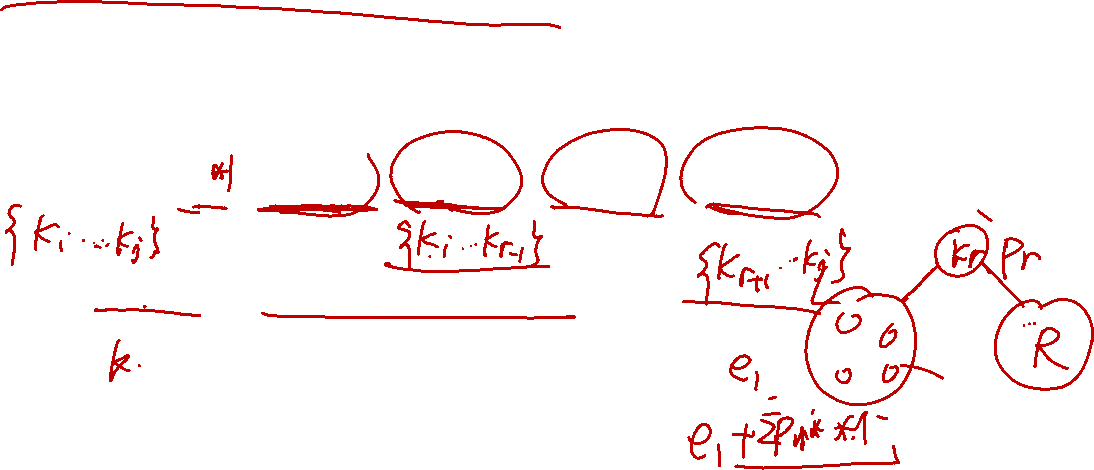 {Ki ... Kj}
{Ki ... Kr-1}
{Kr+1 ... Kj}
Kr Pr
R
k.
e1
e1 +